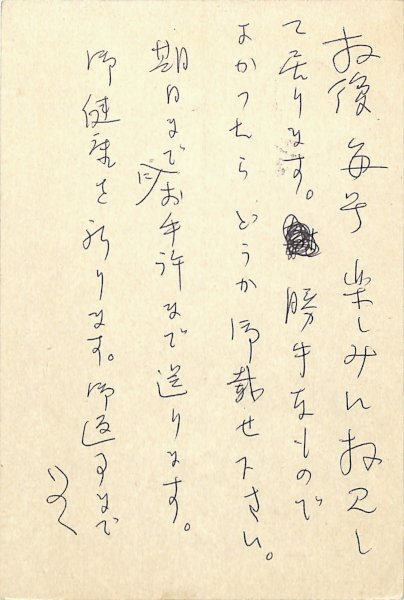 お後 毎号 楽しみにお見し
て居ります。勝手なもので
よかつたらどうか御載せ下さい。
期日までにお手許まで送ります。
御健康を祈ります。御返事まで